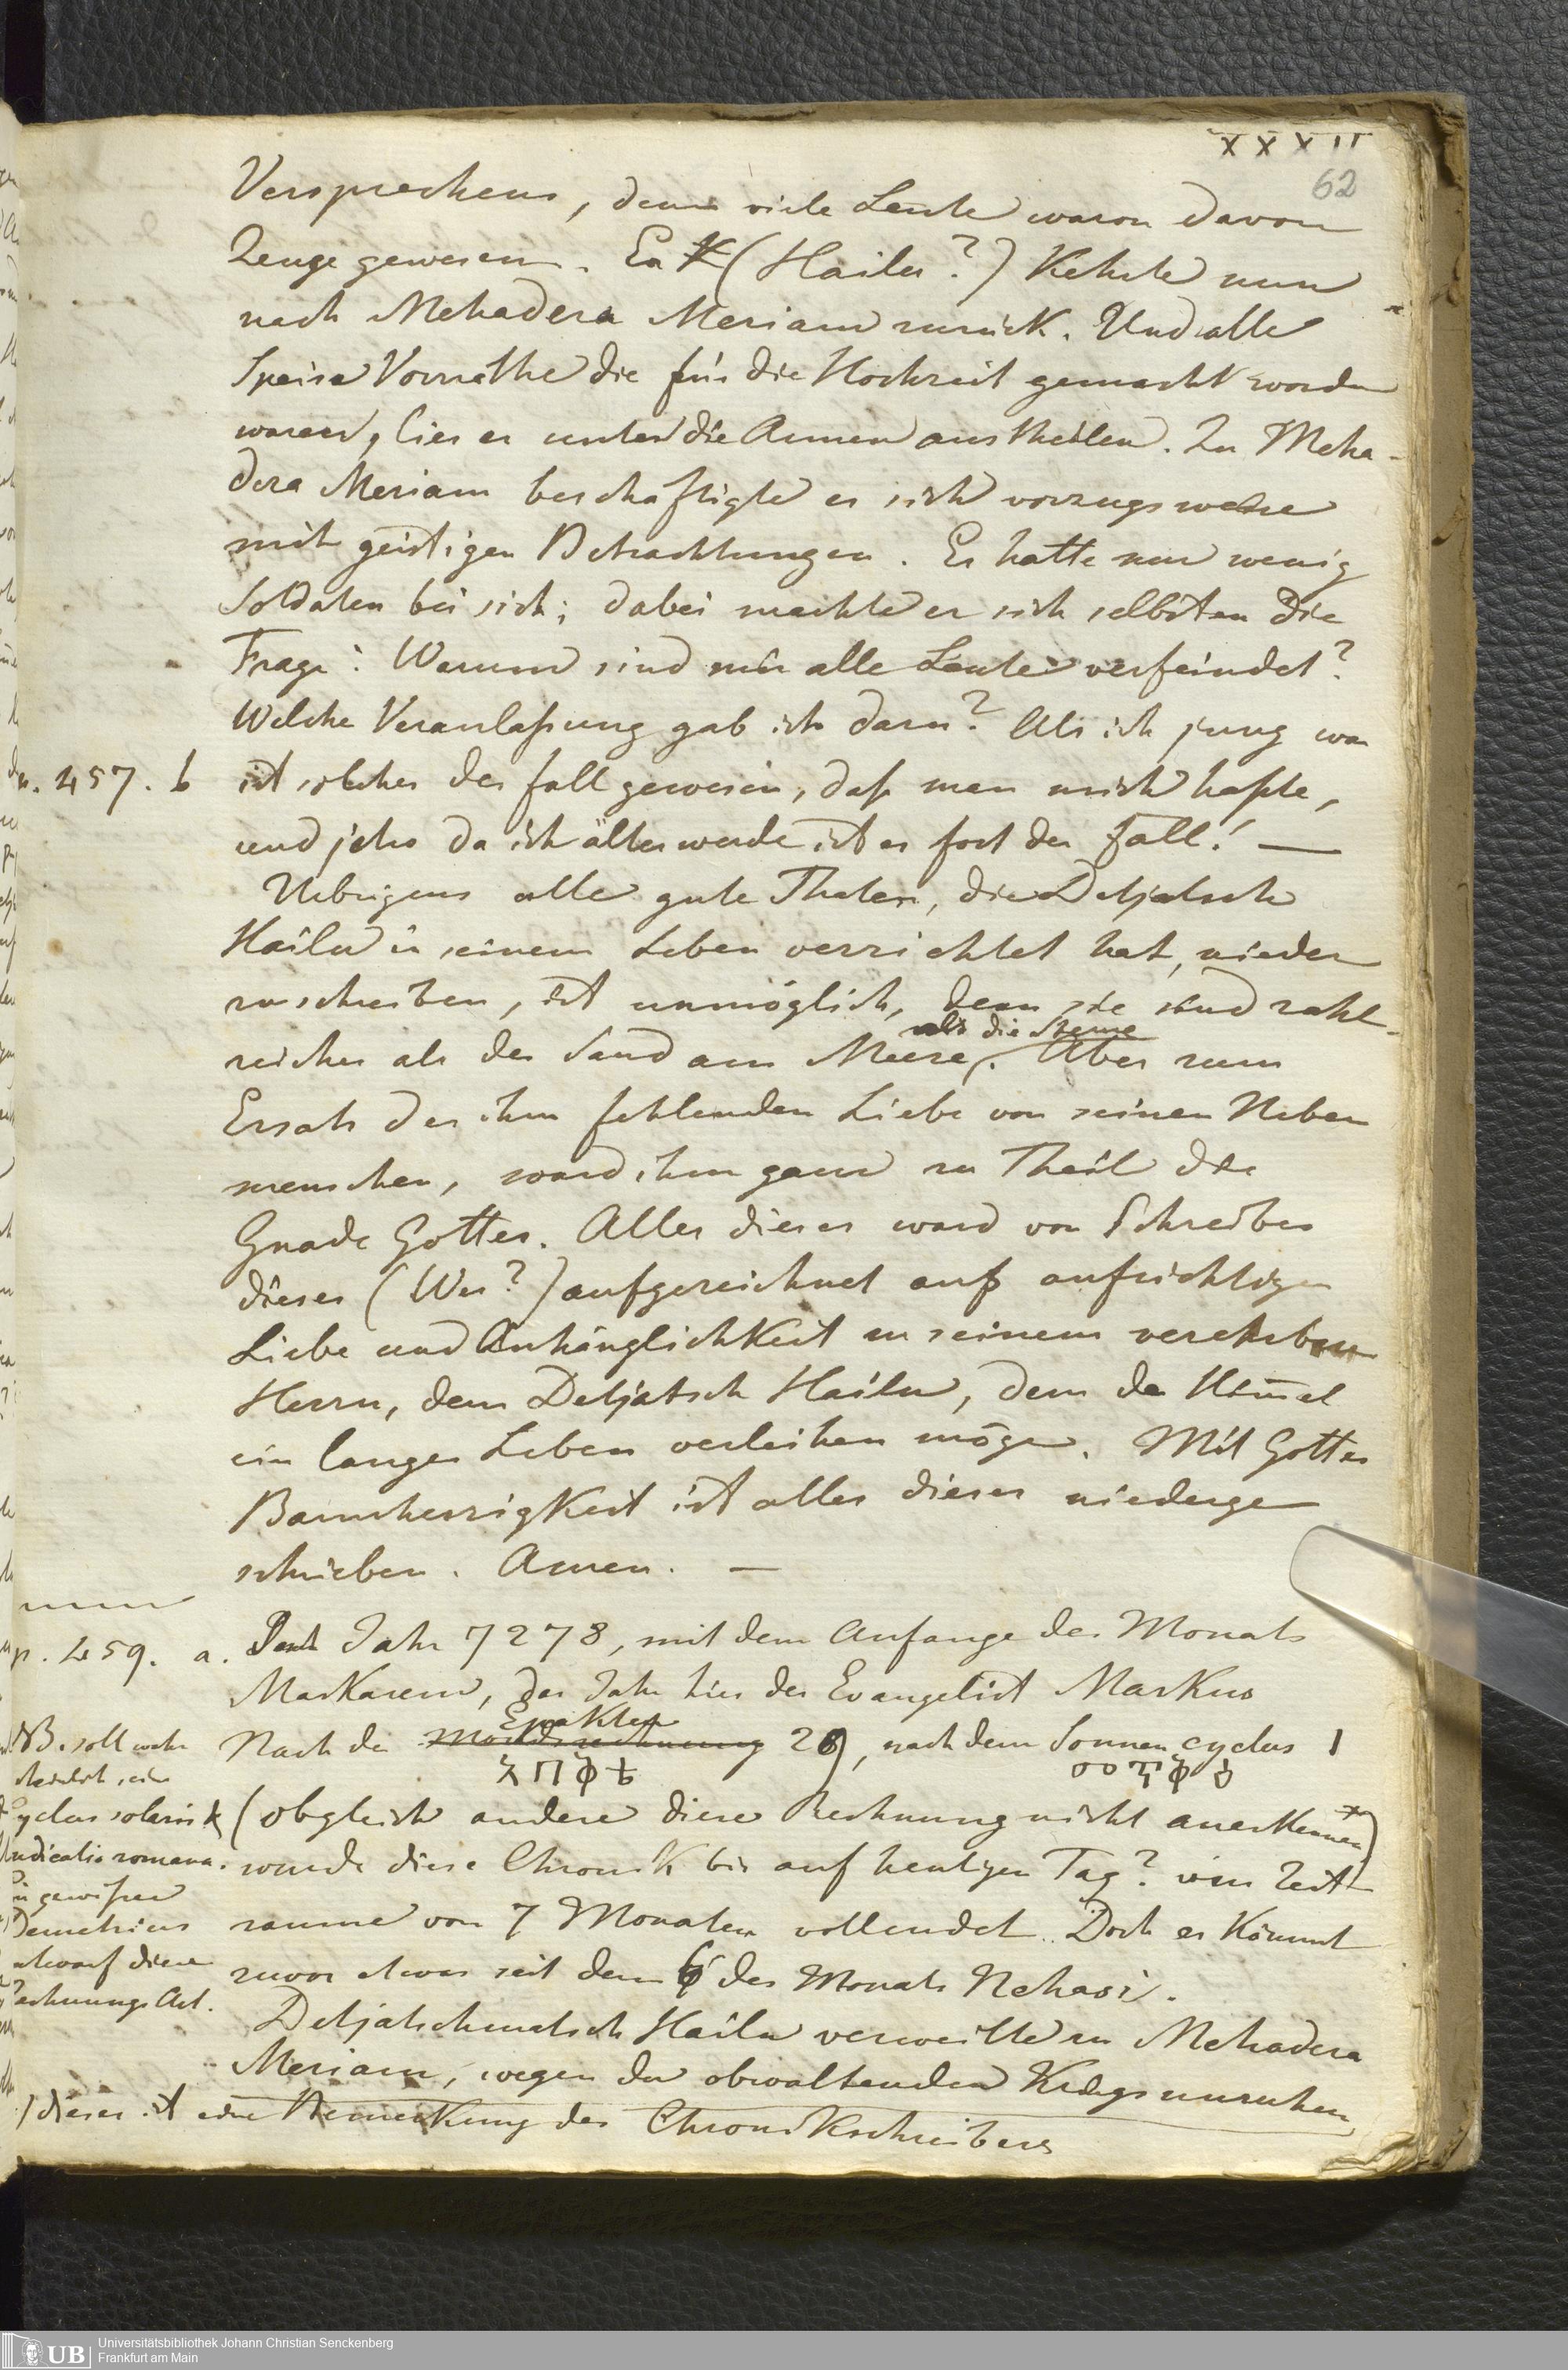 XXXII
62
Versprechens, denn viele Leute waren davon
Zeuge gewesen. Er (Hailu?) Kehrte nun
nach Mehadera Meriam zurück. Und alle
Speise Vorräthe die für die Hochzeit gemacht worden
waren, lies er unter die Armen austheilen. Zu Meha-
dera Meriam beschäftigte er sich vorzugsweise
mit geistigen Betrachtungen. Er hatte nur wenig
Soldaten bei sich; dabei machte er sich selbsten die
Frage: Warum sind mir alle Leute verfeindet?
Welche Veranlaßung gab ich dazu? Als ich jung war
p. 457. b ist solches der fall gewesen, daß man mich haßte,
und jetzo da ich älter werde ist es fort der Fall! —
Uebrigens alle gute Thaten, die Detjatsch
Hailu in seinem Leben verrichtet hat, nieder
zuschreiben, ist unmöglich, denn sie sind zahl-
als die Sterne
reicher als der Sand am Meere. Aber zum
Ersatz der ihm fehlenden Liebe von seinen Neben
menschen, ward ihm ganz zu Theil die
Gnade Gottes. Alles dieses ward von Schreiber
dieses (Wer?) aufgezeichnet auß aufrichtigen
Liebe und Anhänglichkeit zu seinem verehrten
Herrn, dem Detjatsch Hailu, dem der Him̄el
ein langes Leben verleihen möge. Mit Gottes
Barmherzigkeit ist alles dieses niederge
schrieben. Amen. —
p. 459. a. Jahr 7278, mit dem Anfange des Monats
Maskarem, das Jahr hies der Evangelist Markus
Epakten
Nach der Mondsrechnung 28, nach dem Sonnen cyclus 1
አበቅቴ መጥቅዕ
(obgleich andere diese Rechnung nicht anerkennen)
wurde diese Chronik bis auf heutigen Tag? im Zeit
raume von 7 Monaten vollendet. Doch es kömmt
zuvor etwas seit dem 6 des Monats Nehasi.
Detjatschmatsch Hailu verweilte zu Mehadera
Meriam, wegen der obwaltenden Kriegsunruhen,
NB. soll wahr
scheinlich sein
Cyclus solaris &
Indicatio romana.
Ein gewißer
Demetrius
entwarf diese
Rechnungs Art.
dieses ist eine Bemerkung des Chronikschreibers
UB
Universitätsbibliothek Johann Christian Senckenberg
Frankfurt am Main